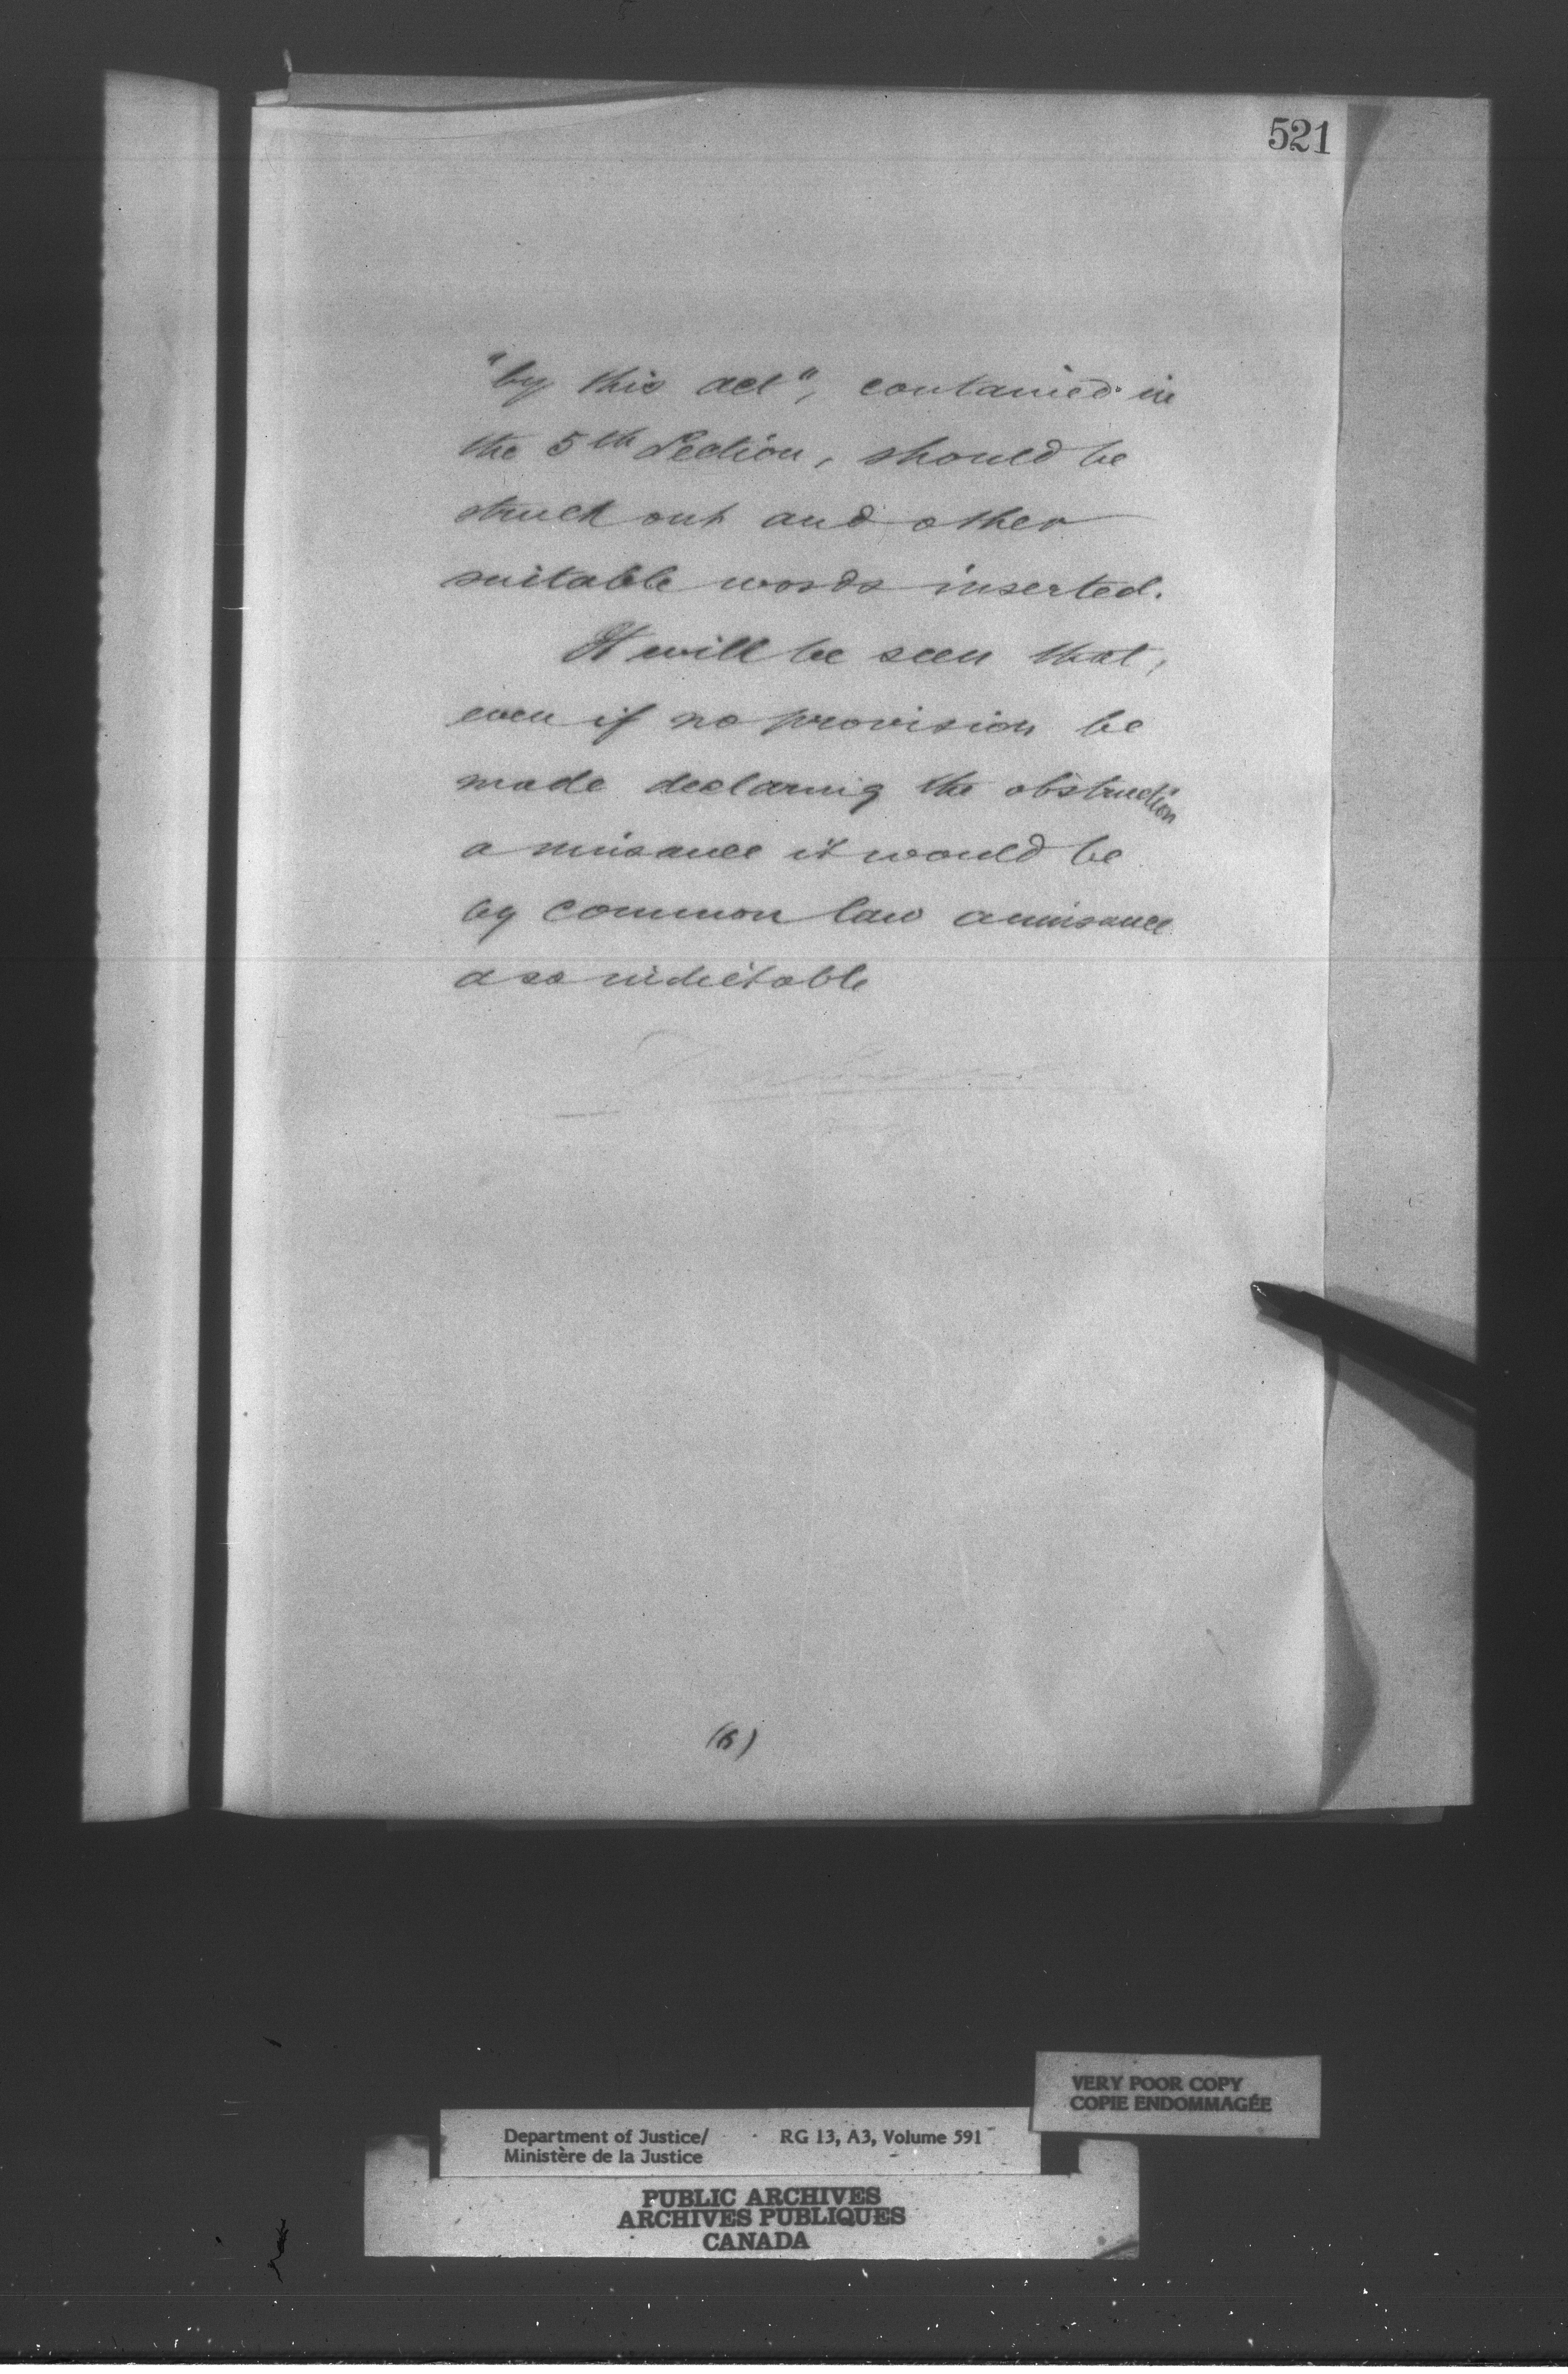 521
"by this act", contained in
the 5th Section, should be
struck out and other
suitable words inserted.
It will be seen that,
even if no provision be
made declaring the obstruction
a nuisance it would be
by common law a nuisance
& so indictable
(6)
VERY POOR COPY
COPIE ENDOMMAGÉE
Department of Justice/ RG 13, A3, Volume 591
Ministère de la Justice
PUBLIC ARCHIVES
ARCHIVES PUBLIQUES
CANADA